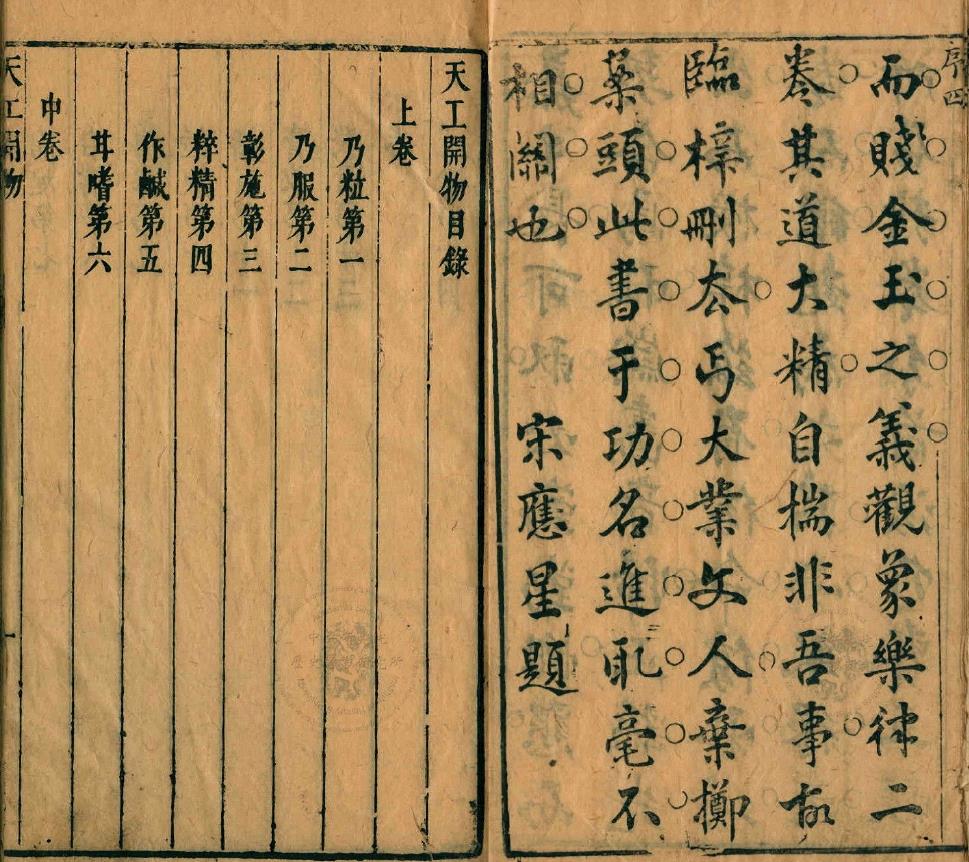 序四
而賤金玉之義觀象樂律二
卷其道大精自揣非吾事故
臨梓刪去丐大業文人棄擲
案頭此書于功名進取毫不
相關也　宋應星題
天工開物目錄
上卷
乃粒第一
乃服第二
彰施第三
粹精第四
作鹹第五
甘嗜第六
中卷
天工開物
一